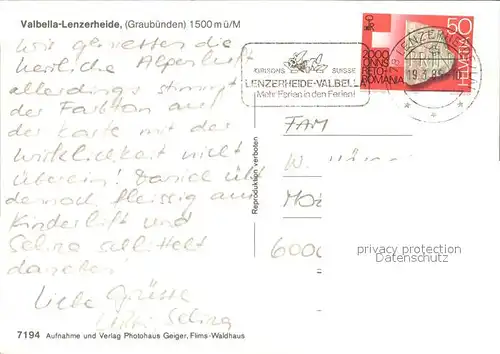 Valbella-Lenzerheide, (Graubünden) 1500 m ü/M
Wir geniessen die
herrliche Alpenluft
allerdings stimmt
der Farbton auf
der Karte mit der
Wirklichkeit nicht
überein! Daniel übt
dennoch fleissig am
Kinderlift und
Selina
daneben!
Liebe Grüsse
Selina
7194 Aufnahme und Verlag Photohaus Geiger, Flims-Waldhaus
Reproduktion verboten
GRISONS SUISSE
LENZERHEIDE-VALBELLA
Mehr Ferien in den Ferien!
2000
ONNS
RETO-
ROMANIA
50
HELVETIA
LENZERHEIDE
19.3.85
FAM
W.
6000
privacy protection